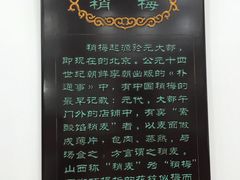 稍梅
稍梅起源於元大都，
即現在的北京。公元十四
世紀朝鮮李朝出版的《朴
通事》中，有中國稍梅的
最早記載：元代，大都午
門外的店鋪中，有賣“素
酸餡稍麥”者，以麥面做
成薄片，包肉、蒸熟，與
湯食之，方言謂之稍麥。
山西称“稍麦”为“稍梅